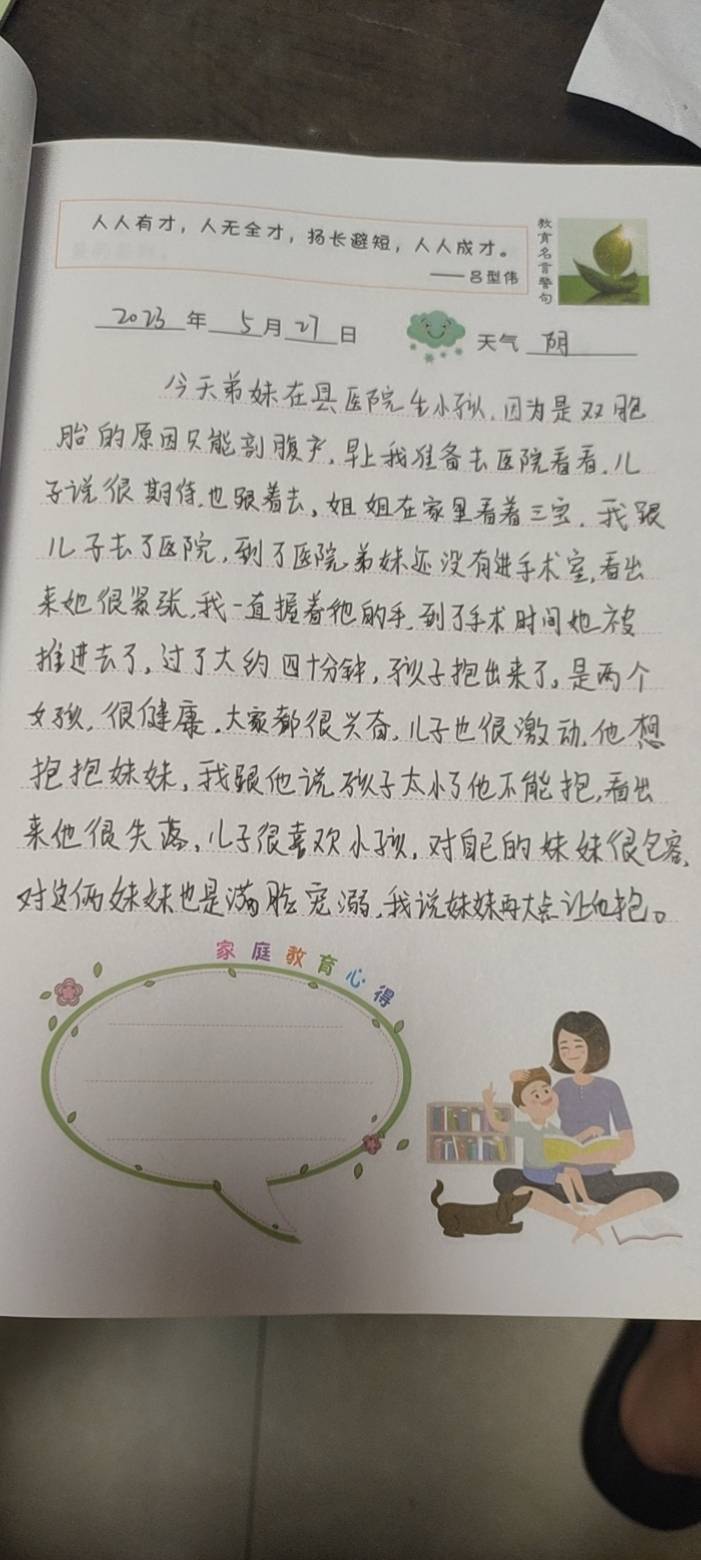 人人有才，人无全才，扬长避短，人人成才。
——吕型伟
教育名言警句
2023年5月27日
天气 阴
今天弟妹在县医院生小孩.因为是双胞
胎的原因只能剖腹产.早上我准备去医院看看.儿
子说很期待.也跟着去，姐姐在家里看着三宝.我跟
儿子去了医院，到了医院.弟妹还没有进手术室,看出
来她很紧张,我一直握着他的手.到了手术时间她被
推进去了，过了大约四十分钟，孩子抱出来了。是两个
女孩.很健康.大家都很兴奋.儿子也很激动.他想
抱抱妹妹，我跟他说孩子太小了他不能抱,看出
来他很失落，儿子很喜欢小孩，对自己的妹妹很包容,
对这俩妹妹也是满脸宠溺.我说妹妹再大点让他抱。
家庭教育心得